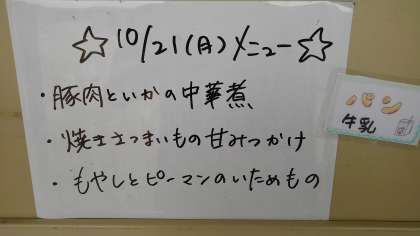 ☆10/21(月)メニュー☆
・豚肉といかの中華煮
・焼きさつまいもの甘みつかけ
・もやしとピーマンのいためもの
パン
牛乳